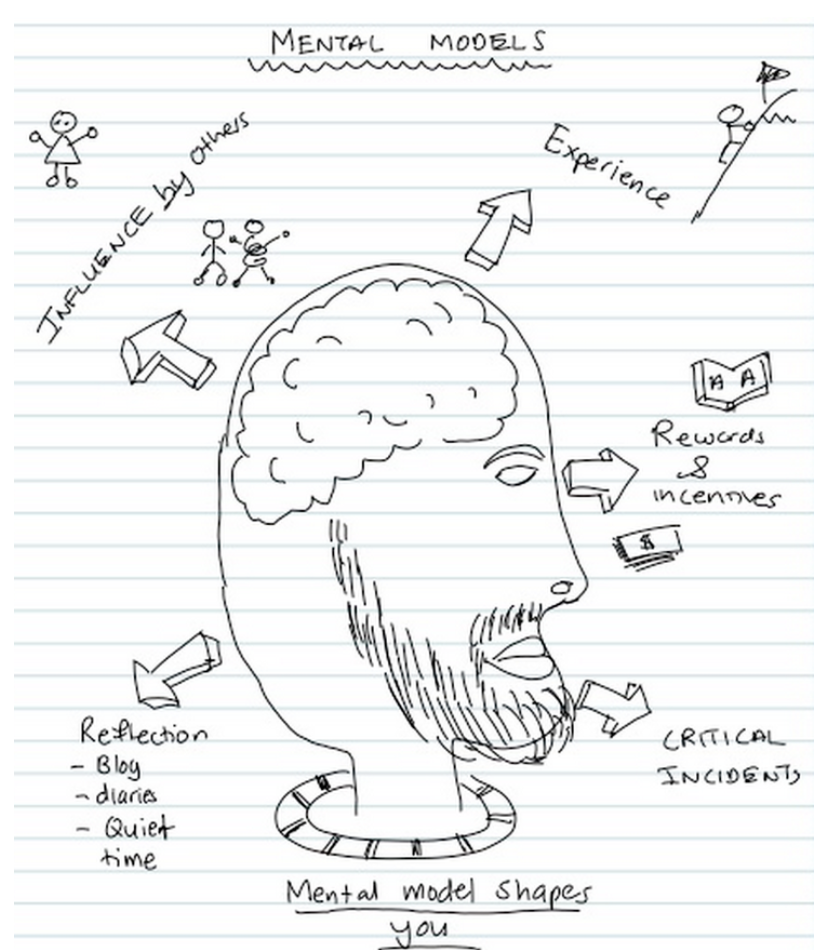 MENTAL MODELS
INFLUENCE by others
Experience
A A
Rewards
&
incentives
$
Reflection
- Blog
- diaries
- Quiet
time
CRITICAL
INCIDENTS
Mental model shapes
you